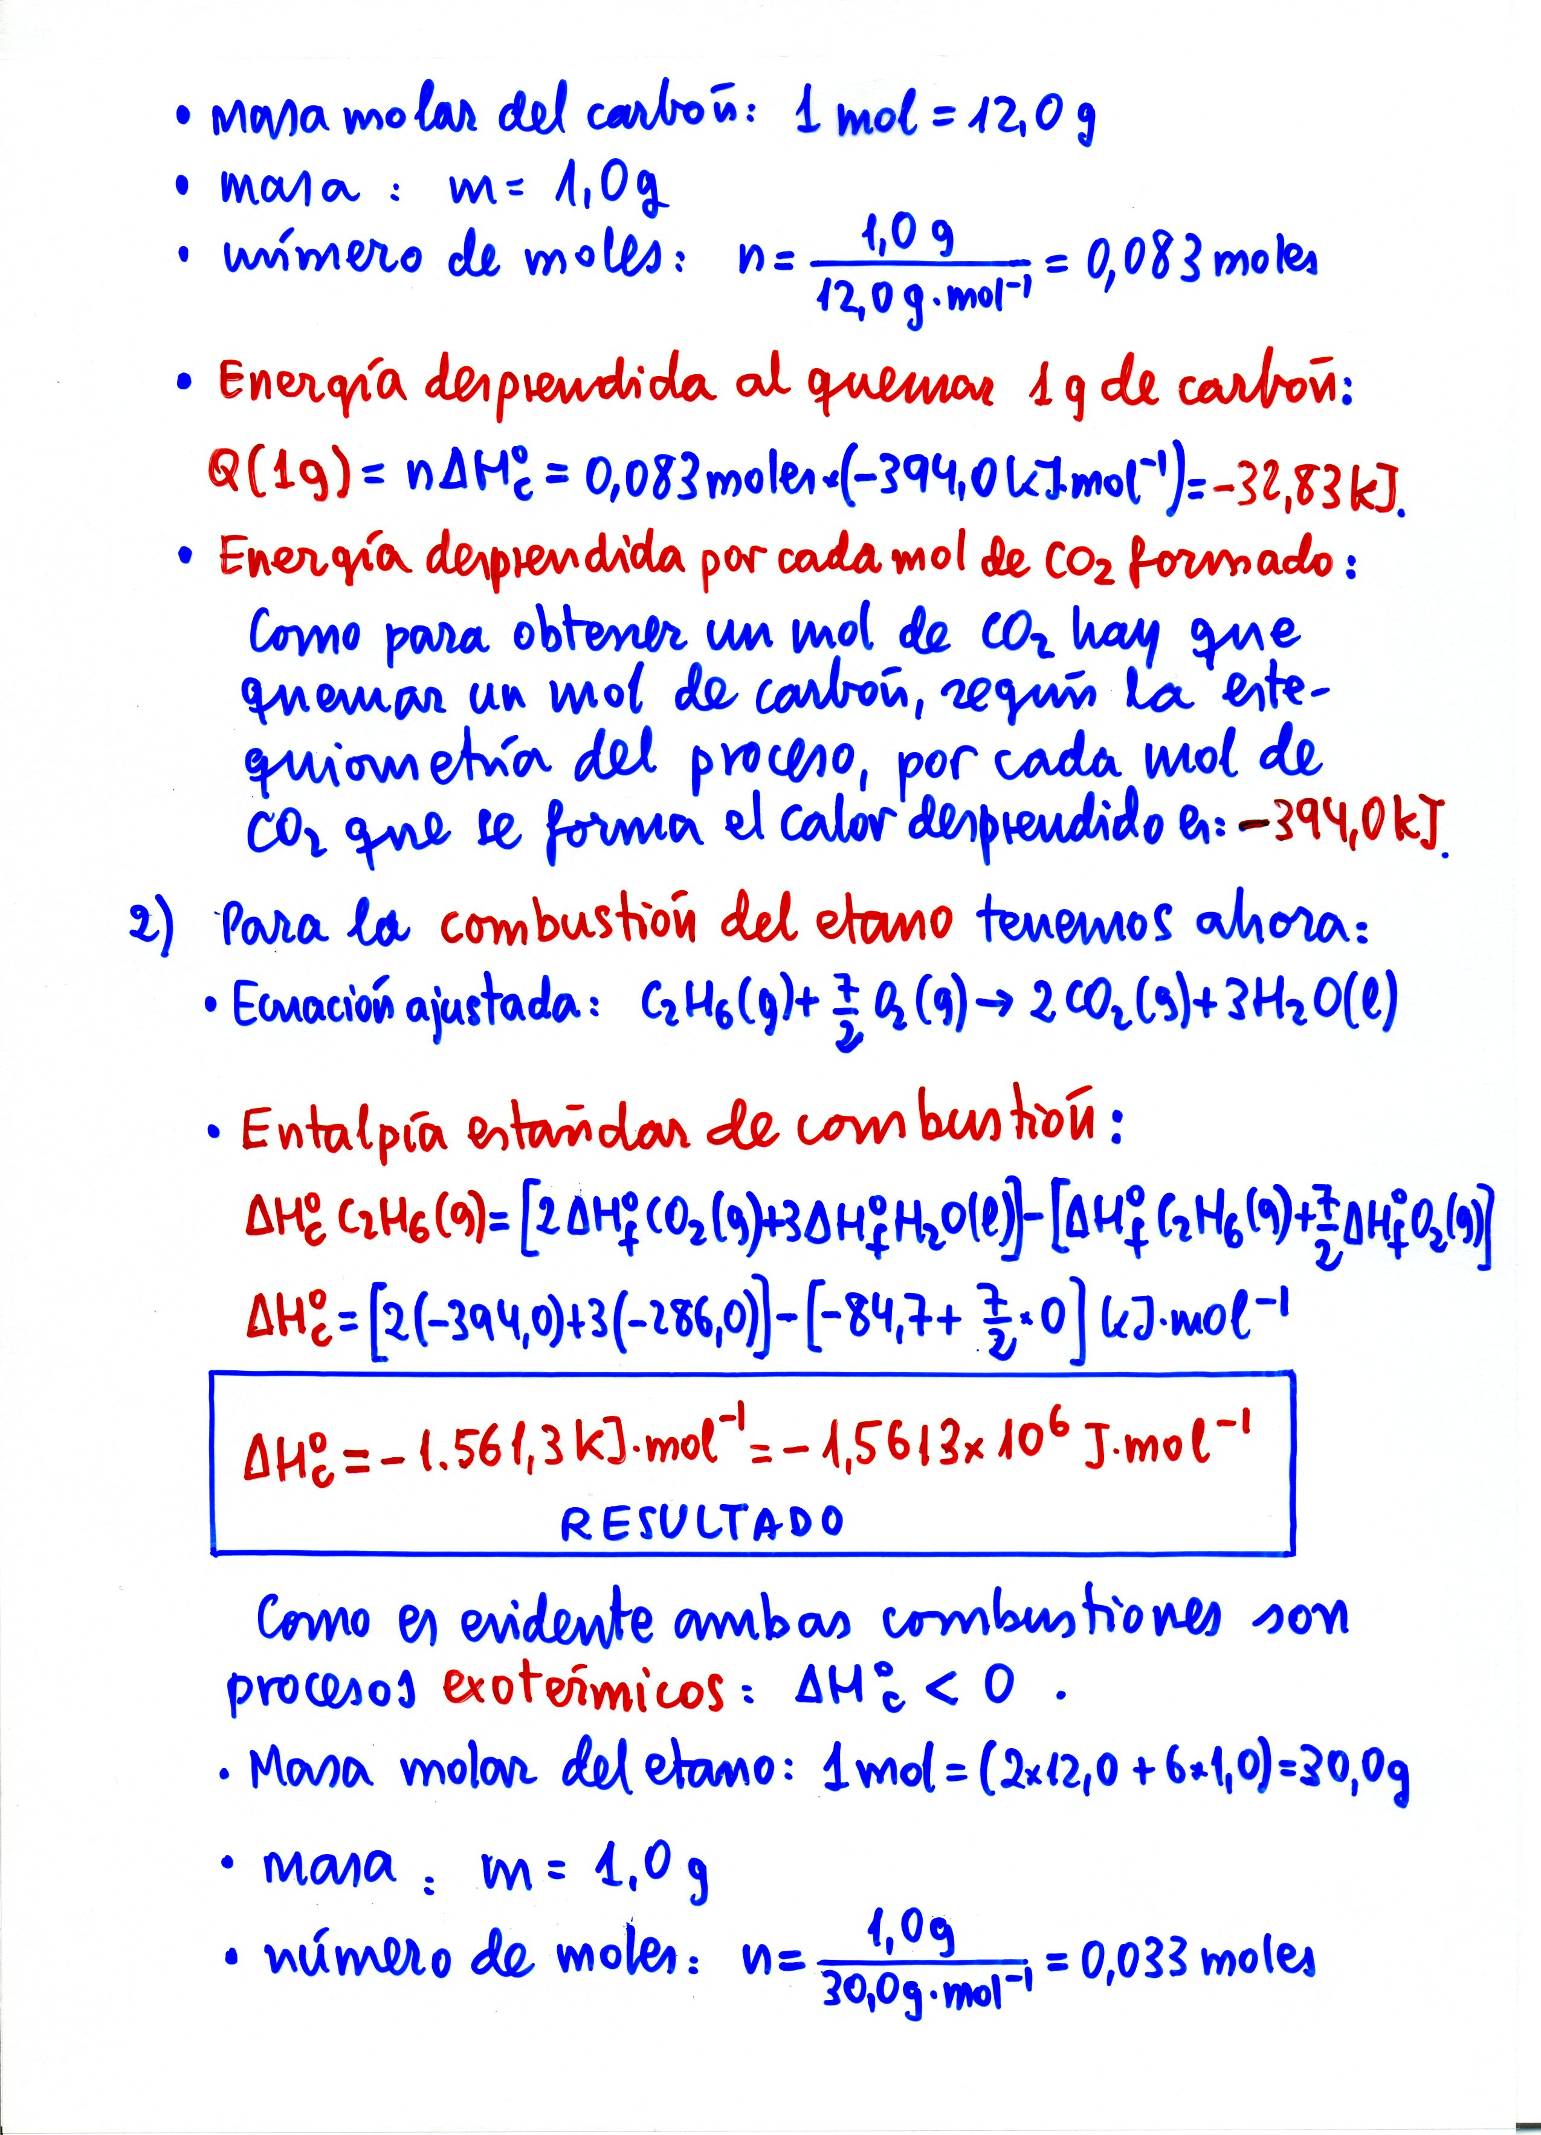 • masa molar del carbón: 1 mol = 12,0 g
• masa : m = 1,0 g
• número de moles: n = 1,0 g / 12,0 g·mol⁻¹ = 0,083 moles
• Energía desprendida al quemar 1 g de carbón:
Q(1g) = nΔH°c = 0,083 moles×(-394,0 kJ·mol⁻¹) = -32,83 kJ.
• Energía desprendida por cada mol de CO₂ formado:
Como para obtener un mol de CO₂ hay que
quemar un mol de carbón, según la este-
quiometría del proceso, por cada mol de
CO₂ que se forma el calor desprendido es: -394,0 kJ.
2) Para la combustión del etano tenemos ahora:
• Ecuación ajustada: C₂H₆(g) + 7/2 O₂(g) → 2CO₂(g) + 3H₂O(l)
• Entalpía estándar de combustión:
ΔH°c C₂H₆(g) = [2ΔH°f CO₂(g)+3ΔH°f H₂O(l)] - [ΔH°f C₂H₆(g) + 7/2 ΔH°f O₂(g)]
ΔH°c = [2(-394,0)+3(-286,0)] - [-84,7 + 7/2 × 0] kJ·mol⁻¹
ΔH°c = -1.561,3 kJ·mol⁻¹ = -1,5613×10⁶ J·mol⁻¹
RESULTADO
Como es evidente ambas combustiones son
procesos exotérmicos: ΔH°c < 0 .
• Masa molar del etano: 1 mol = (2×12,0 + 6×1,0) = 30,0 g
• masa : m = 1,0 g
• número de moles: n = 1,0 g / 30,0 g·mol⁻¹ = 0,033 moles